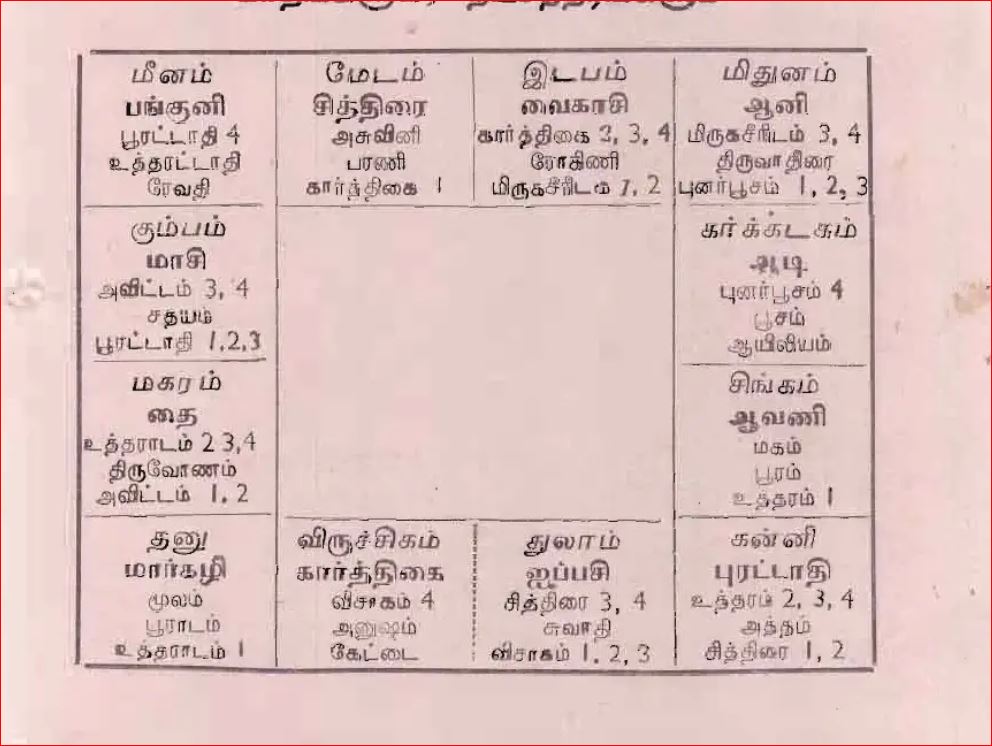 மீனம்
பங்குனி
பூரட்டாதி 4
உத்தரட்டாதி
ரேவதி
மேடம்
சித்திரை
அசுவினி
பரணி
கார்த்திகை 1
இடபம்
வைகாசி
கார்த்திகை 2, 3, 4
ரோகிணி
மிருகசீரிடம் 1, 2
மிதுனம்
ஆனி
மிருகசீரிடம் 3, 4
திருவாதிரை
புனர்பூசம் 1, 2, 3
கும்பம்
மாசி
அவிட்டம் 3, 4
சதயம்
பூரட்டாதி 1,2,3
கர்க்கடகம்
ஆடி
புனர்பூசம் 4
பூசம்
ஆயிலியம்
மகரம்
தை
உத்தராடம் 2 3,4
திருவோணம்
அவிட்டம் 1, 2
சிங்கம்
ஆவணி
மகம்
பூரம்
உத்தரம் 1
தனு
மார்கழி
மூலம்
பூராடம்
உத்தராடம் 1
விருச்சிகம்
கார்த்திகை
விசாகம் 4
அனுஷம்
கேட்டை
துலாம்
ஐப்பசி
சித்திரை 3, 4
சுவாதி
விசாகம் 1, 2, 3
கன்னி
புரட்டாதி
உத்தரம் 2, 3, 4
அத்தம்
சித்திரை 1, 2